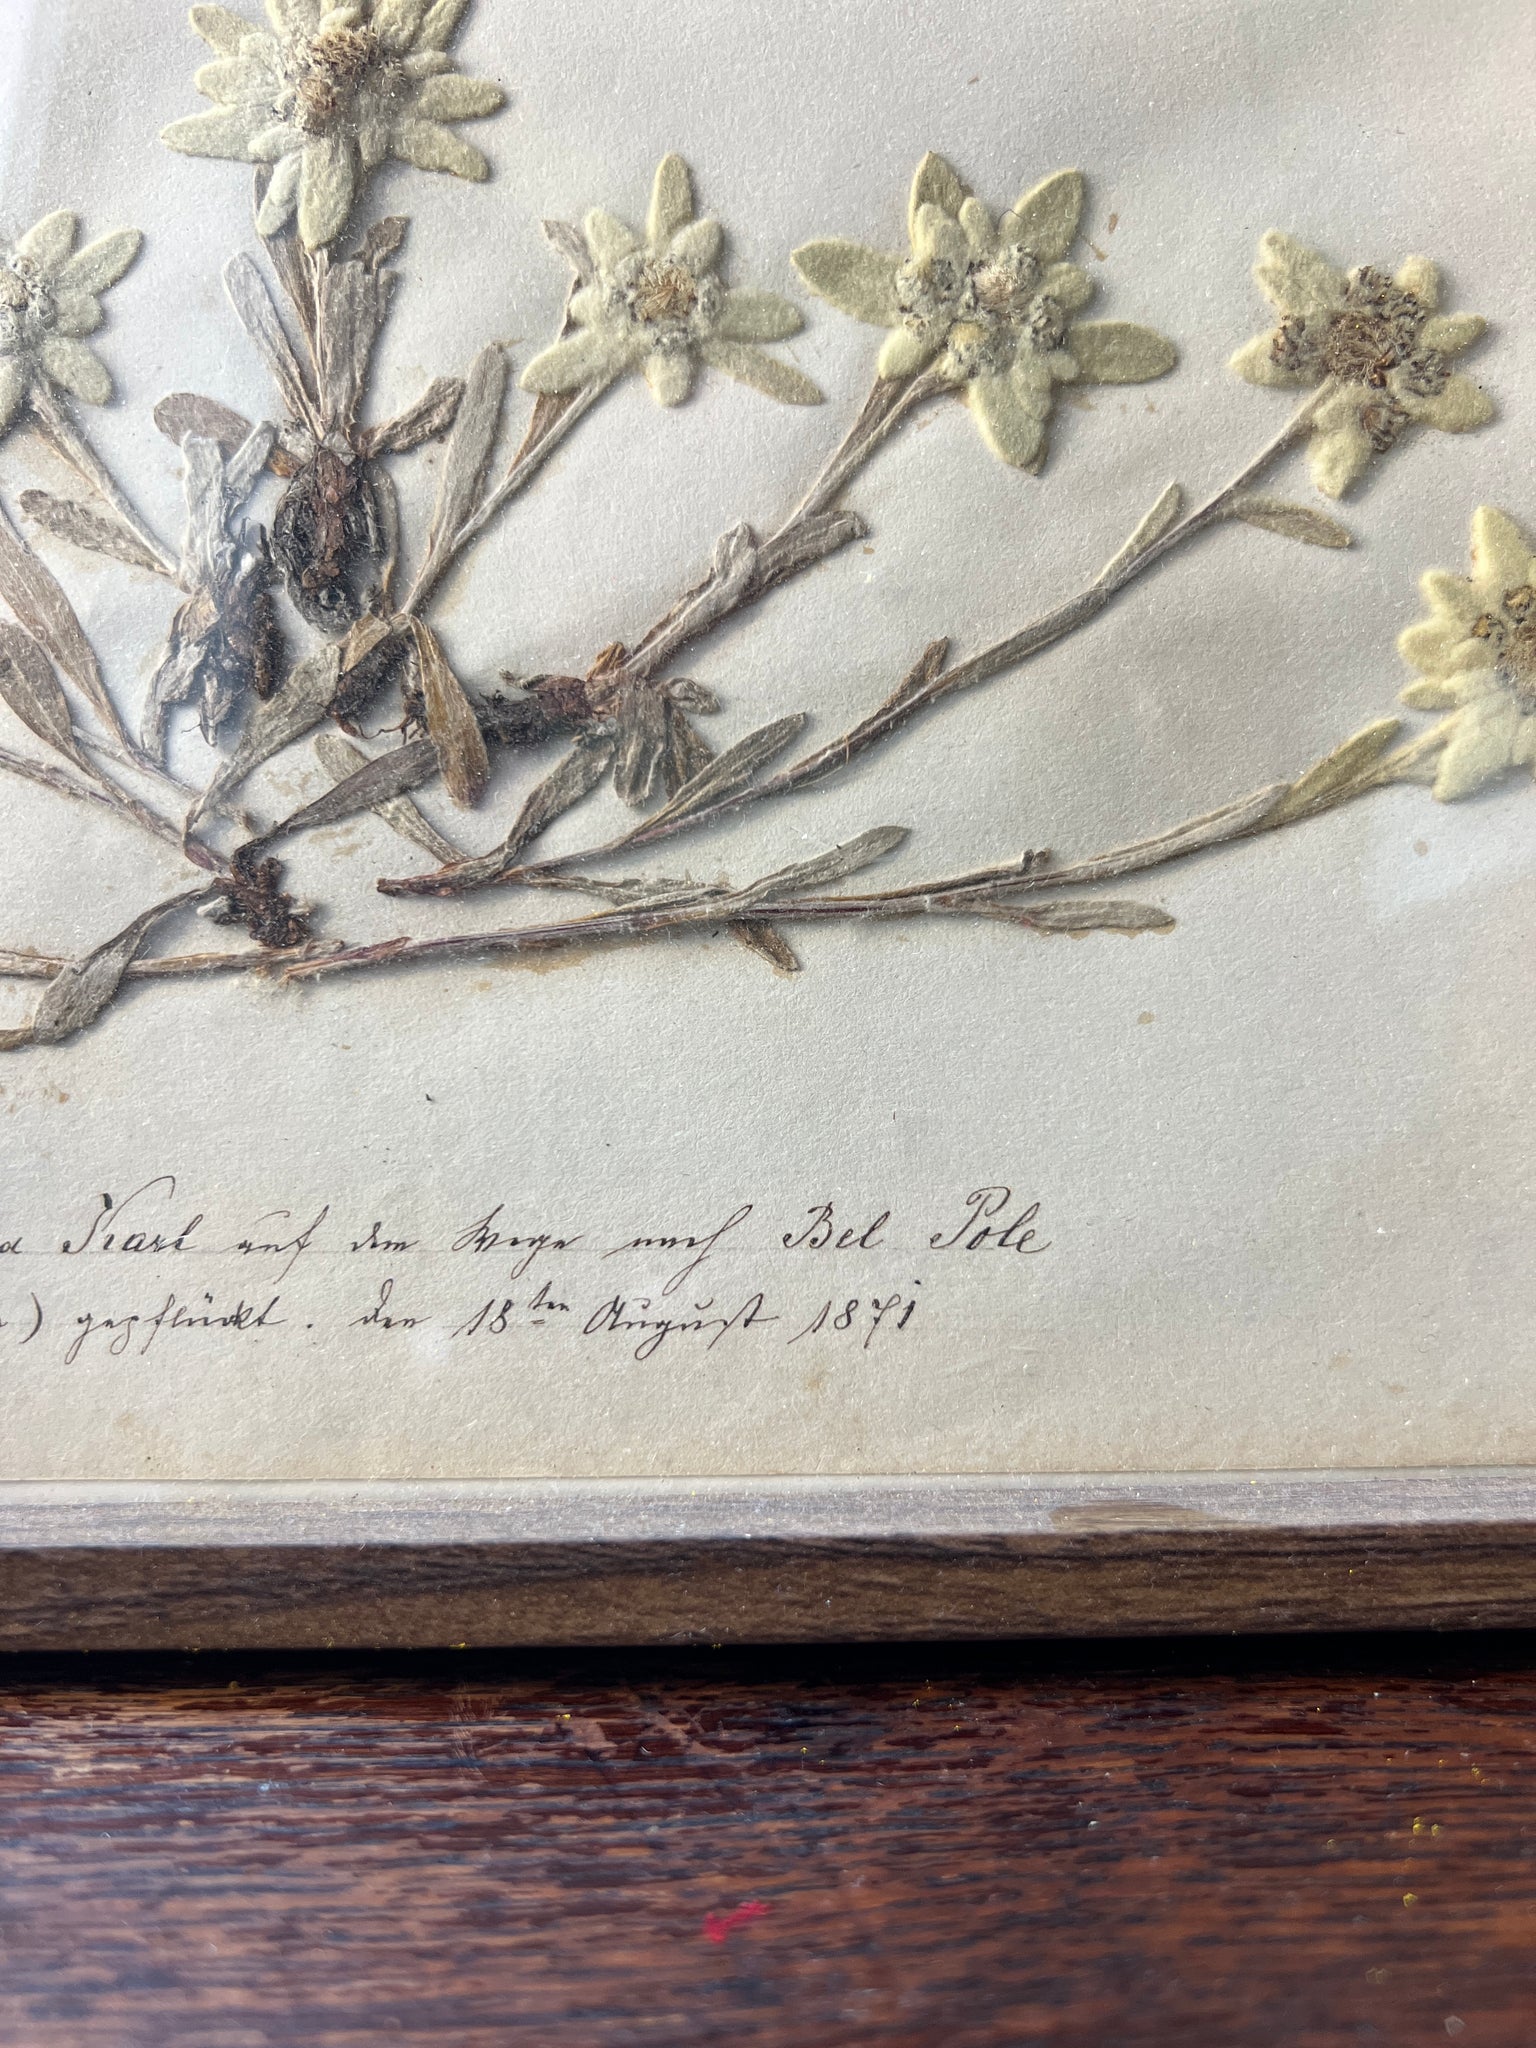 Karl auf dem Wege nach Bel Pole
) gepflückt. den 18ten August 1871